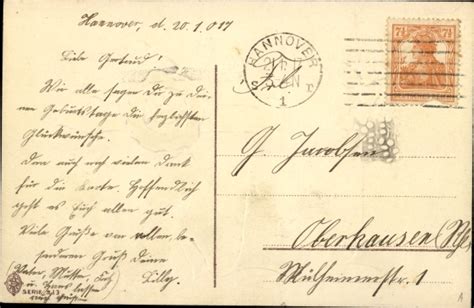 Hannover, d. 20.1.017
Liebe Gertrud!
Wir alle sagen Dir zu Dei-
nem Geburtstage die herzlichsten
Glückwünsche.
Dann auch noch vielen Dank
für die Karte. Hoffendlich
geht es Euch allen gut.
Viele Grüße von allen, be-
sonderen Gruß Deine
(Vater, Mutter, Lilly.
u. Hans lassen
auch grüßen
SERIE
HANNOVER
1
7½ 7½
G. Jacobsen
Oberhausen
Mülheimerstr. 1